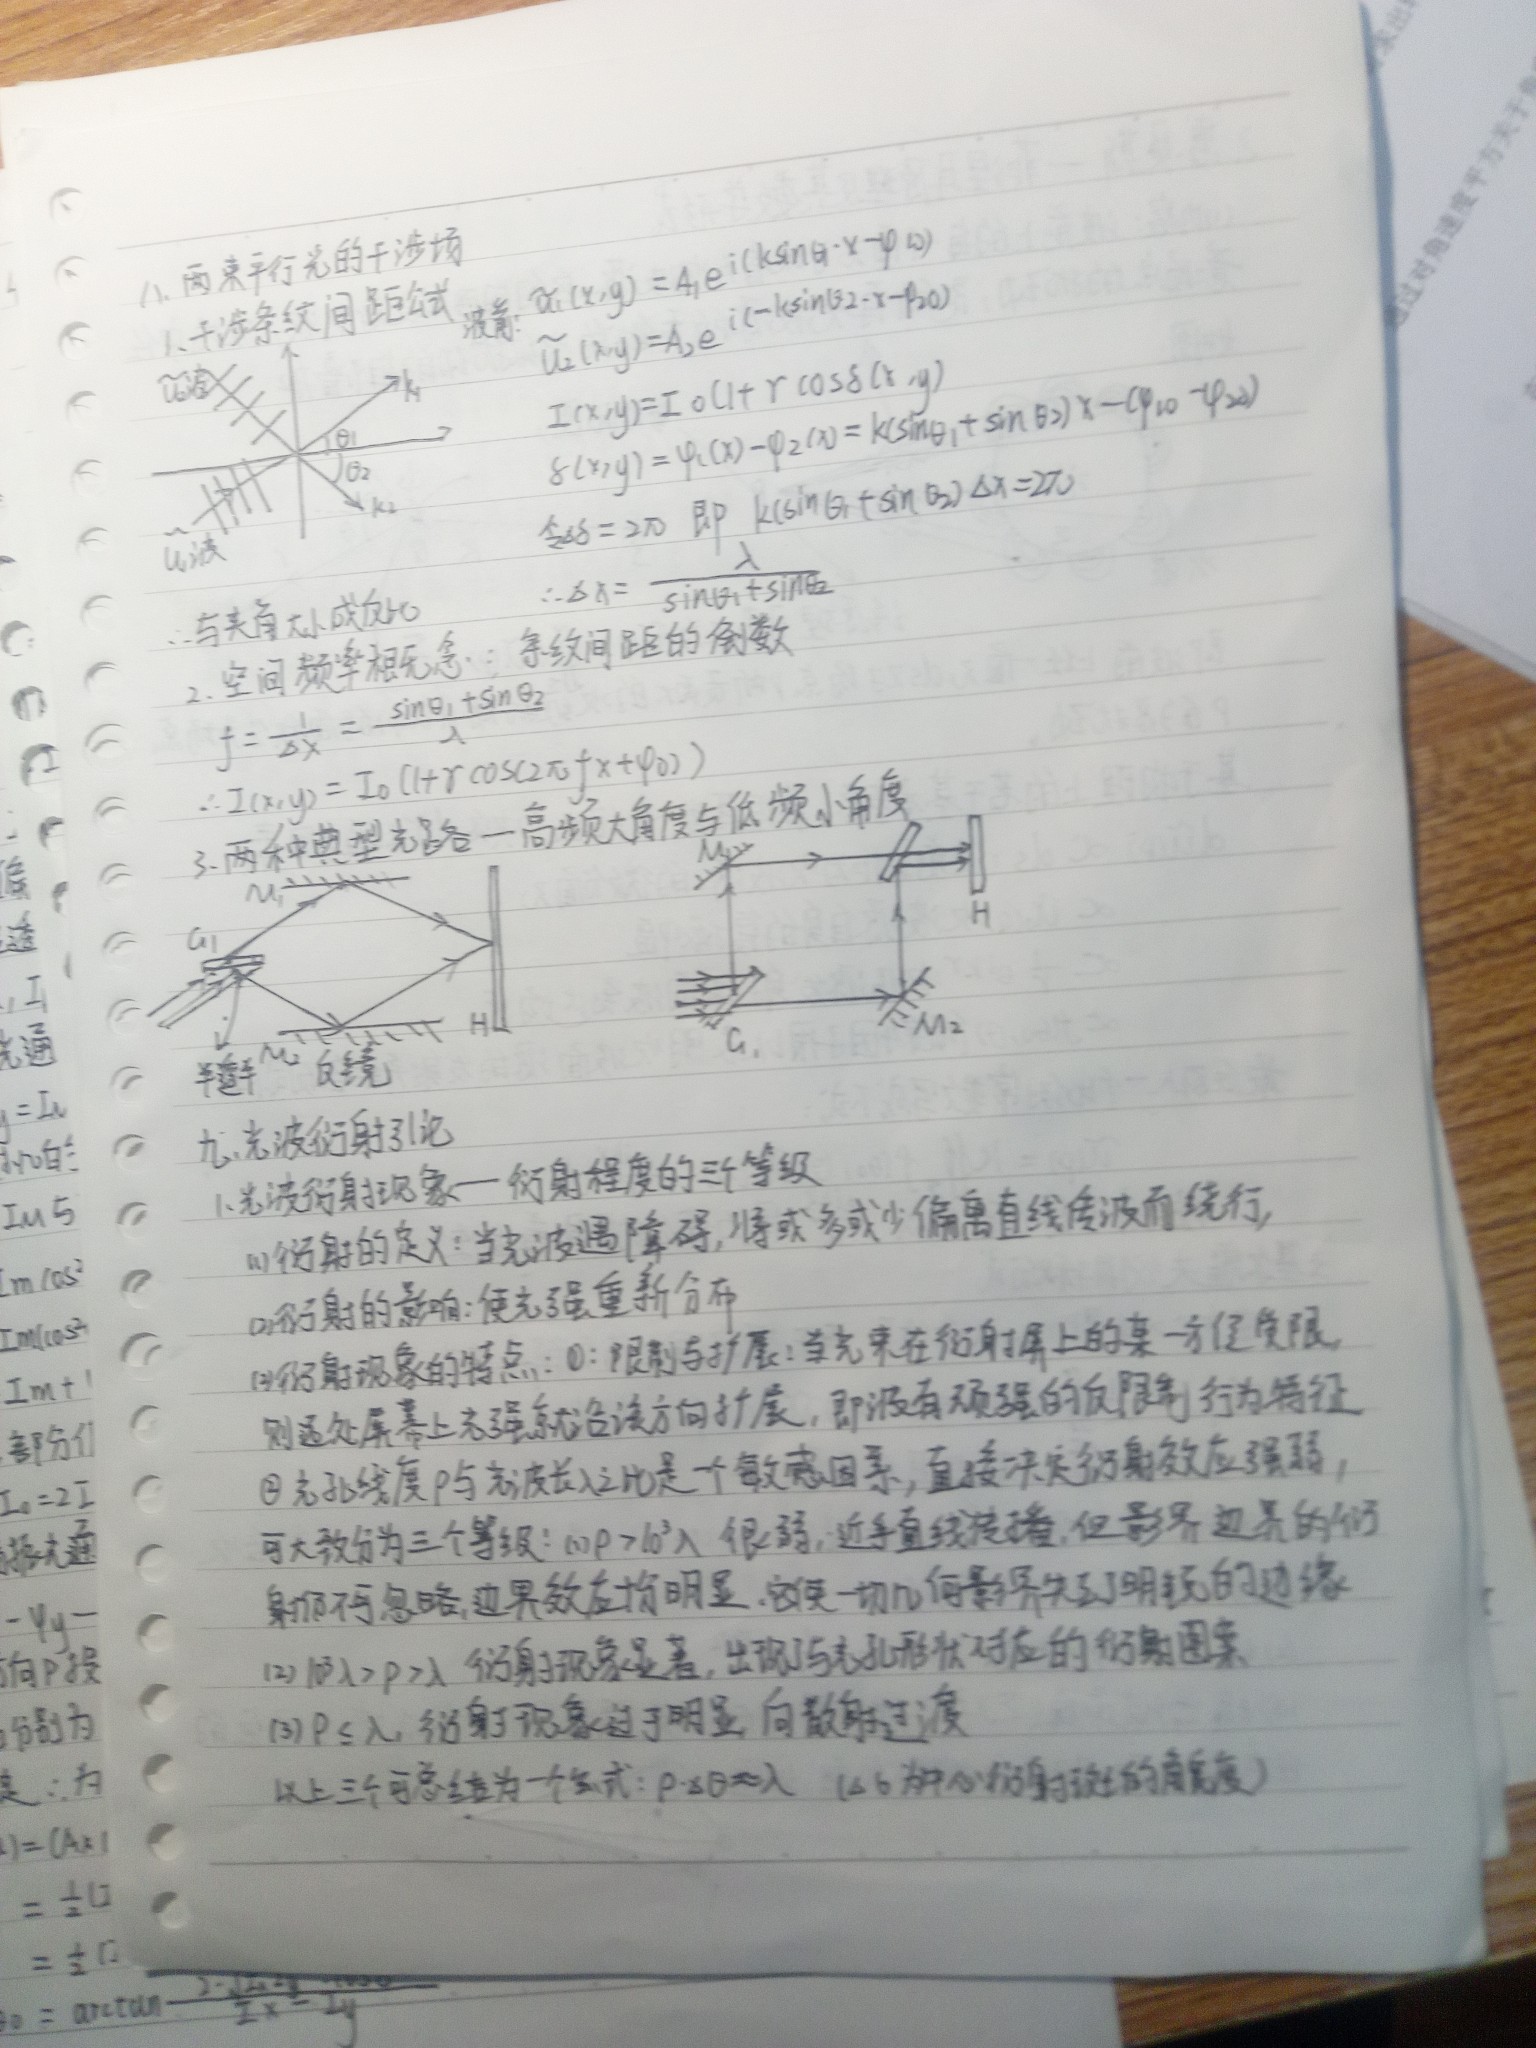 八、两束平行光的干涉场
1、干涉条纹间距公式 波前: Ũ₁(x,y)=A₁e^{i(ksinθ₁·x-φ₁₀)}
Ũ₂(x,y)=A₂e^{i(-ksinθ2·x-φ20)}
Ũ₂波 k₁ θ1 θ2 k₂ Ũ₁波
I(x,y)=I0(1+γcosδ(x,y)
δ(x,y)=φ₁(x)-φ2(x)=k(sinθ₁+sinθ2)x-(φ10-φ20)
令Δδ=2π 即 k(sinθ₁+sinθ2)Δx=2π
∴Δx=λ/(sinθ₁+sinθ2)
∴与夹角大小成反比
2、空间频率概念:条纹间距的倒数
f=1/Δx=(sinθ₁+sinθ2)/λ
∴I(x,y)=I₀(1+γcos(2πfx+φ0))
3、两种典型光路—高频大角度与低频小角度
M₁ G₁ M₂ H 半透半反镜
M₁ H G₁ M₂
九、光波衍射引论
1、光波衍射现象—衍射程度的三个等级
(1)衍射的定义:当光波遇障碍,将或多或少偏离直线传波而绕行,
(2)衍射的影响:使光强重新分布
(3)衍射现象的特点:①:限制与扩展:当光束在衍射屏上的某一方位受限,
则远处屏幕上光强就沿该方向扩展,即波有顽强的反限制行为特征
②光孔线度ρ与光波长λ之比是一个敏感因素,直接决定衍射效应强弱,
可大致分为三个等级:(1)ρ>10³λ 很弱,近乎直线传播,但影界边界的衍
射仍不可忽略,边界效应均明显,它使一切几何影界失到明锐的边缘
(2)10³λ>ρ>λ 衍射现象显著,出现了与光孔形状对应的衍射图案
(3)ρ≤λ,衍射现象过于明显,向散射过渡
以上三个可总结为一个公式:ρ·Δθ≈λ (Δθ为中心衍射斑的角宽度)
y=Iu
Im5
Imcos²
Im(cos²
Im+
部分
I₀=2I
-φy-
分别为
∴为
=(Ax
=½(I
=½(I
θ0=arctan
Ix-Iy
通过对角速度平方关于角